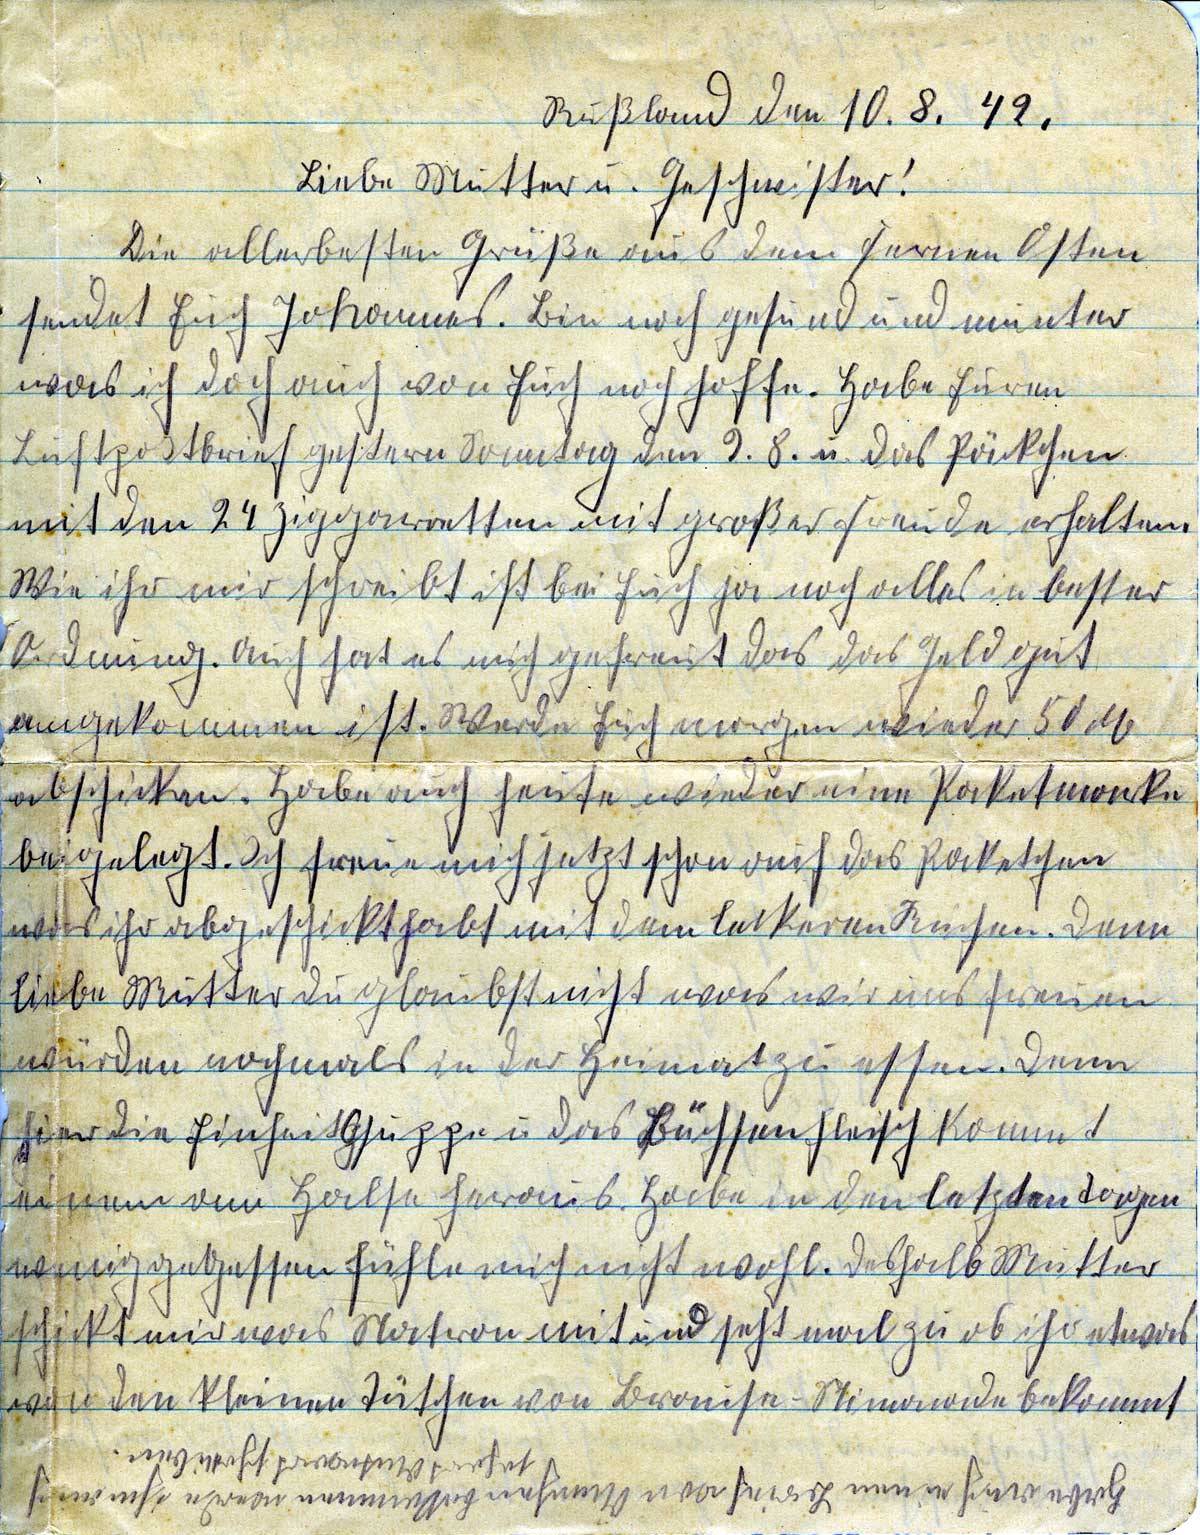 Rußland den 10. 8. 42.
Liebe Mutter u. Geschwister!
Die allerbesten Grüße aus dem fernen Osten
sendet Euch Johannes. Bin noch gesund und munter
was ich doch auch von Euch noch hoffe. Habe Euren
Luftpostbrief gestern Sonntag den 9. 8. u. das Päckchen
mit den 24 Ziggaretten mit großer Freude erhalten.
Wie ihr mir schreibt ist bei Euch ja noch alles in bester
Ordnung. Auch hat es mich gefreut das das Geld gut
angekommen ist. Werde Euch morgen wieder 50 M
abschicken. Habe auch heute wieder eine Paketmarke
beigelegt. Ich freue mich jetzt schon auf das Paketchen
was ihr abgeschickt habt mit dem leckeren Kuchen. Denn
liebe Mutter du glaubst nicht was wir uns freuen
würden nochmals in der Heimat zu essen. Denn
hier die Einheitssuppe u das Büchsenfleisch kommt
einem am Halse heraus. Habe in den letzten Tagen
wenig gegessen fühle mich nicht wohl. Deshalb Mutter
schickt mir was Natron mit und seht mal zu ob ihr etwas
von den kleinen Tütchen von Brause- bekommt
Habe auch einen Brief von bekommen werde ihm auch
sofort Antwort schreiben.